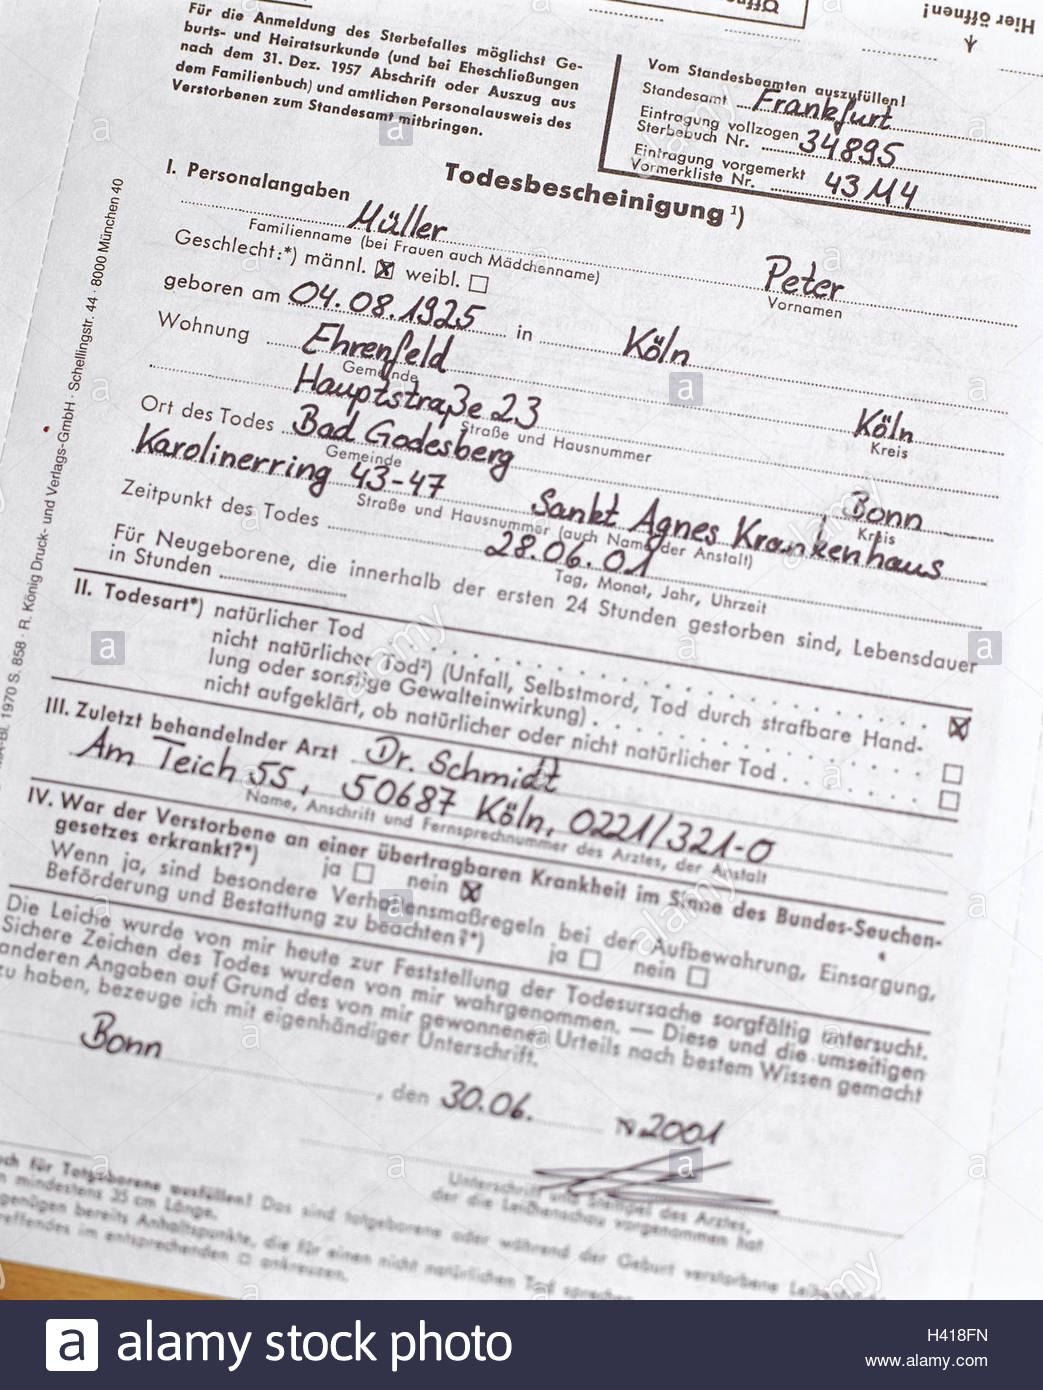 Hier öffnen!
Öffn
Für die Anmeldung des Sterbefalles möglichst Ge-
burts- und Heiratsurkunde (und bei Eheschließungen
nach dem 31. Dez. 1957 Abschrift oder Auszug aus
dem Familienbuch) und amtlichen Personalausweis des
Verstorbenen zum Standesamt mitbringen.
Vom Standesbeamten auszufüllen!
Standesamt Frankfurt
Eintragung vollzogen
Sterbebuch Nr. 34895
Eintragung vorgemerkt
Vormerkliste Nr. 43 M4
Todesbescheinigung ¹)
I. Personalangaben
Müller Peter
Familienname (bei Frauen auch Mädchenname) Vornamen
Geschlecht:*) männl. ☒ weibl. ☐
geboren am 04.08.1925 in Köln
Wohnung Ehrenfeld Köln
Gemeinde Kreis
Hauptstraße 23
Straße und Hausnummer
Ort des Todes Bad Godesberg Bonn
Gemeinde Kreis
Karolinerring 43-47 Sankt Agnes Krankenhaus
Straße und Hausnummer (auch Name der Anstalt)
Zeitpunkt des Todes 28.06.01
Tag, Monat, Jahr, Uhrzeit
Für Neugeborene, die innerhalb der ersten 24 Stunden gestorben sind, Lebensdauer
in Stunden
II. Todesart*) natürlicher Tod ☒
nicht natürlicher Tod²) (Unfall, Selbstmord, Tod durch strafbare Hand-
lung oder sonstige Gewalteinwirkung) ☐
nicht aufgeklärt, ob natürlicher oder nicht natürlicher Tod ☐
III. Zuletzt behandelnder Arzt Dr. Schmidt
Am Teich 55, 50687 Köln, 0221/321-0
Name, Anschrift und Fernsprechnummer des Arztes, der Anstalt
IV. War der Verstorbene an einer übertragbaren Krankheit im Sinne des Bundes-Seuchen-
gesetzes erkrankt?*) ja ☐ nein ☒
Wenn ja, sind besondere Verhaltensmaßregeln bei der Aufbewahrung, Einsargung,
Beförderung und Bestattung zu beachten?*) ja ☐ nein ☐
Die Leiche wurde von mir heute zur Feststellung der Todesursache sorgfältig untersucht.
Sichere Zeichen des Todes wurden von mir wahrgenommen. — Diese und die umseitigen
anderen Angaben auf Grund des von mir gewonnenen Urteils nach bestem Wissen gemacht
zu haben, bezeuge ich mit eigenhändiger Unterschrift.
Bonn, den 30.06. 2001
Unterschrift und Stempel des Arztes,
der die Leichenschau vorgenommen hat
och für Totgeborene ausfüllen! Das sind totgeborene oder während der Geburt verstorbene
mindestens 35 cm Länge.
genügen bereits Anhaltspunkte, die für einen nicht natürlichen Tod
reffendes im entsprechenden ☐ ankreuzen.
1970 S. 858 · R. König Druck- und Verlags-GmbH · Schellingstr. 44 · 8000 München 40
alamy
a alamy stock photo
H418FN
www.alamy.com